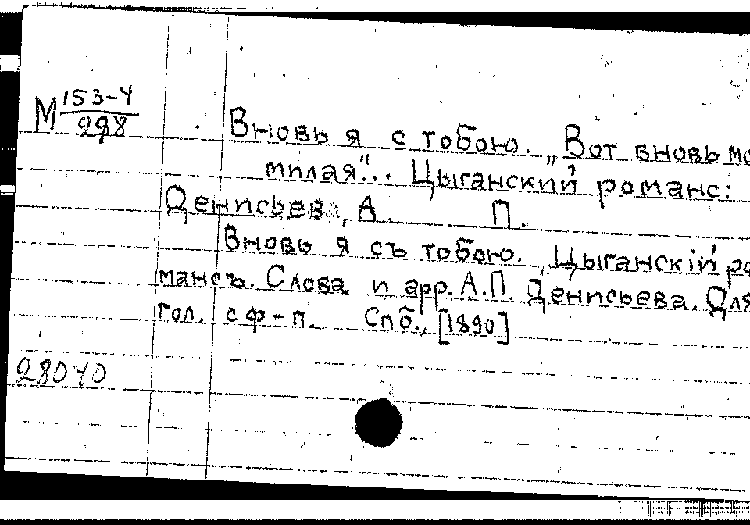 М 153-4
298
Вновь я с тобою. „Вот вновь мо
милая“... Цыганский романс:
Денисьева, А. П.
Вновь я съ тобою. Цыганскій ро
мансъ. Слова и арр. А.П. Денисьева. Для
гол. с ф-п. Спб., [1890]
28040